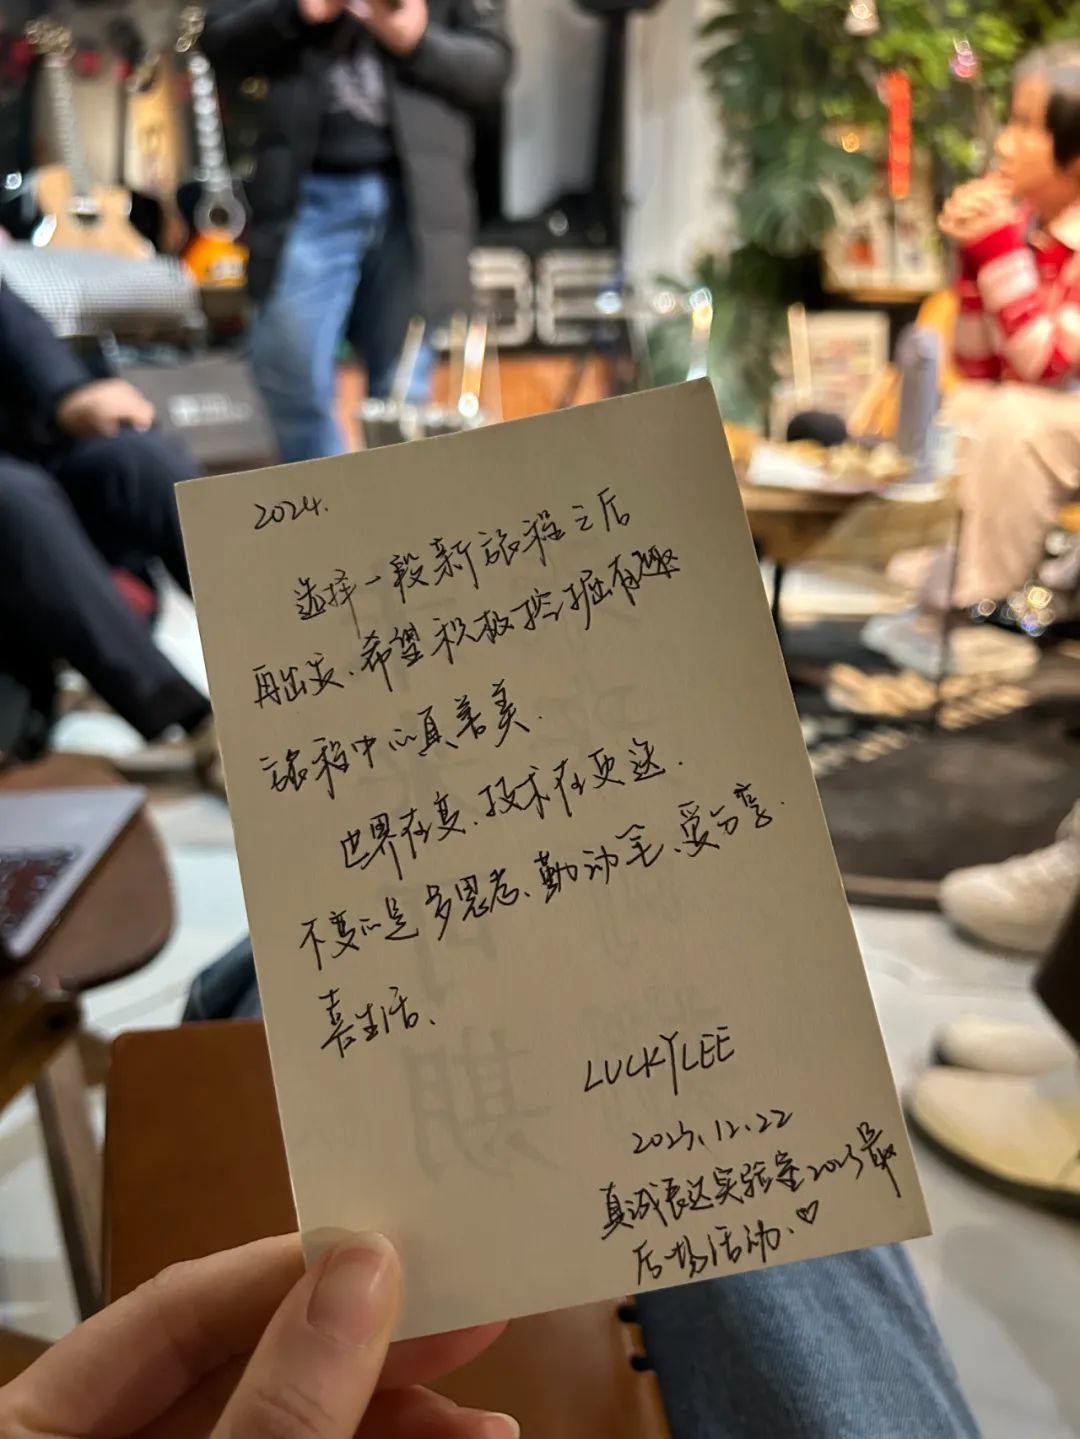 2024.
选择一段新旅程之后
再出发、希望积极挖掘有趣
旅程中心真善美.
世界在变、技术在更迭.
不变心是多思考、勤动笔、爱分享.
喜生活、
LUCKYLEE
2023.12.22
真诚表达实验室2023最
后一场活动.♡
期